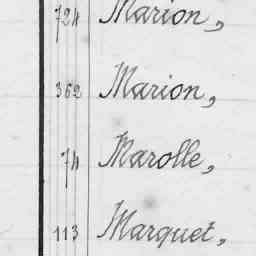 724 Marion,
362 Marion,
74 Marolle,
113 Marquet,